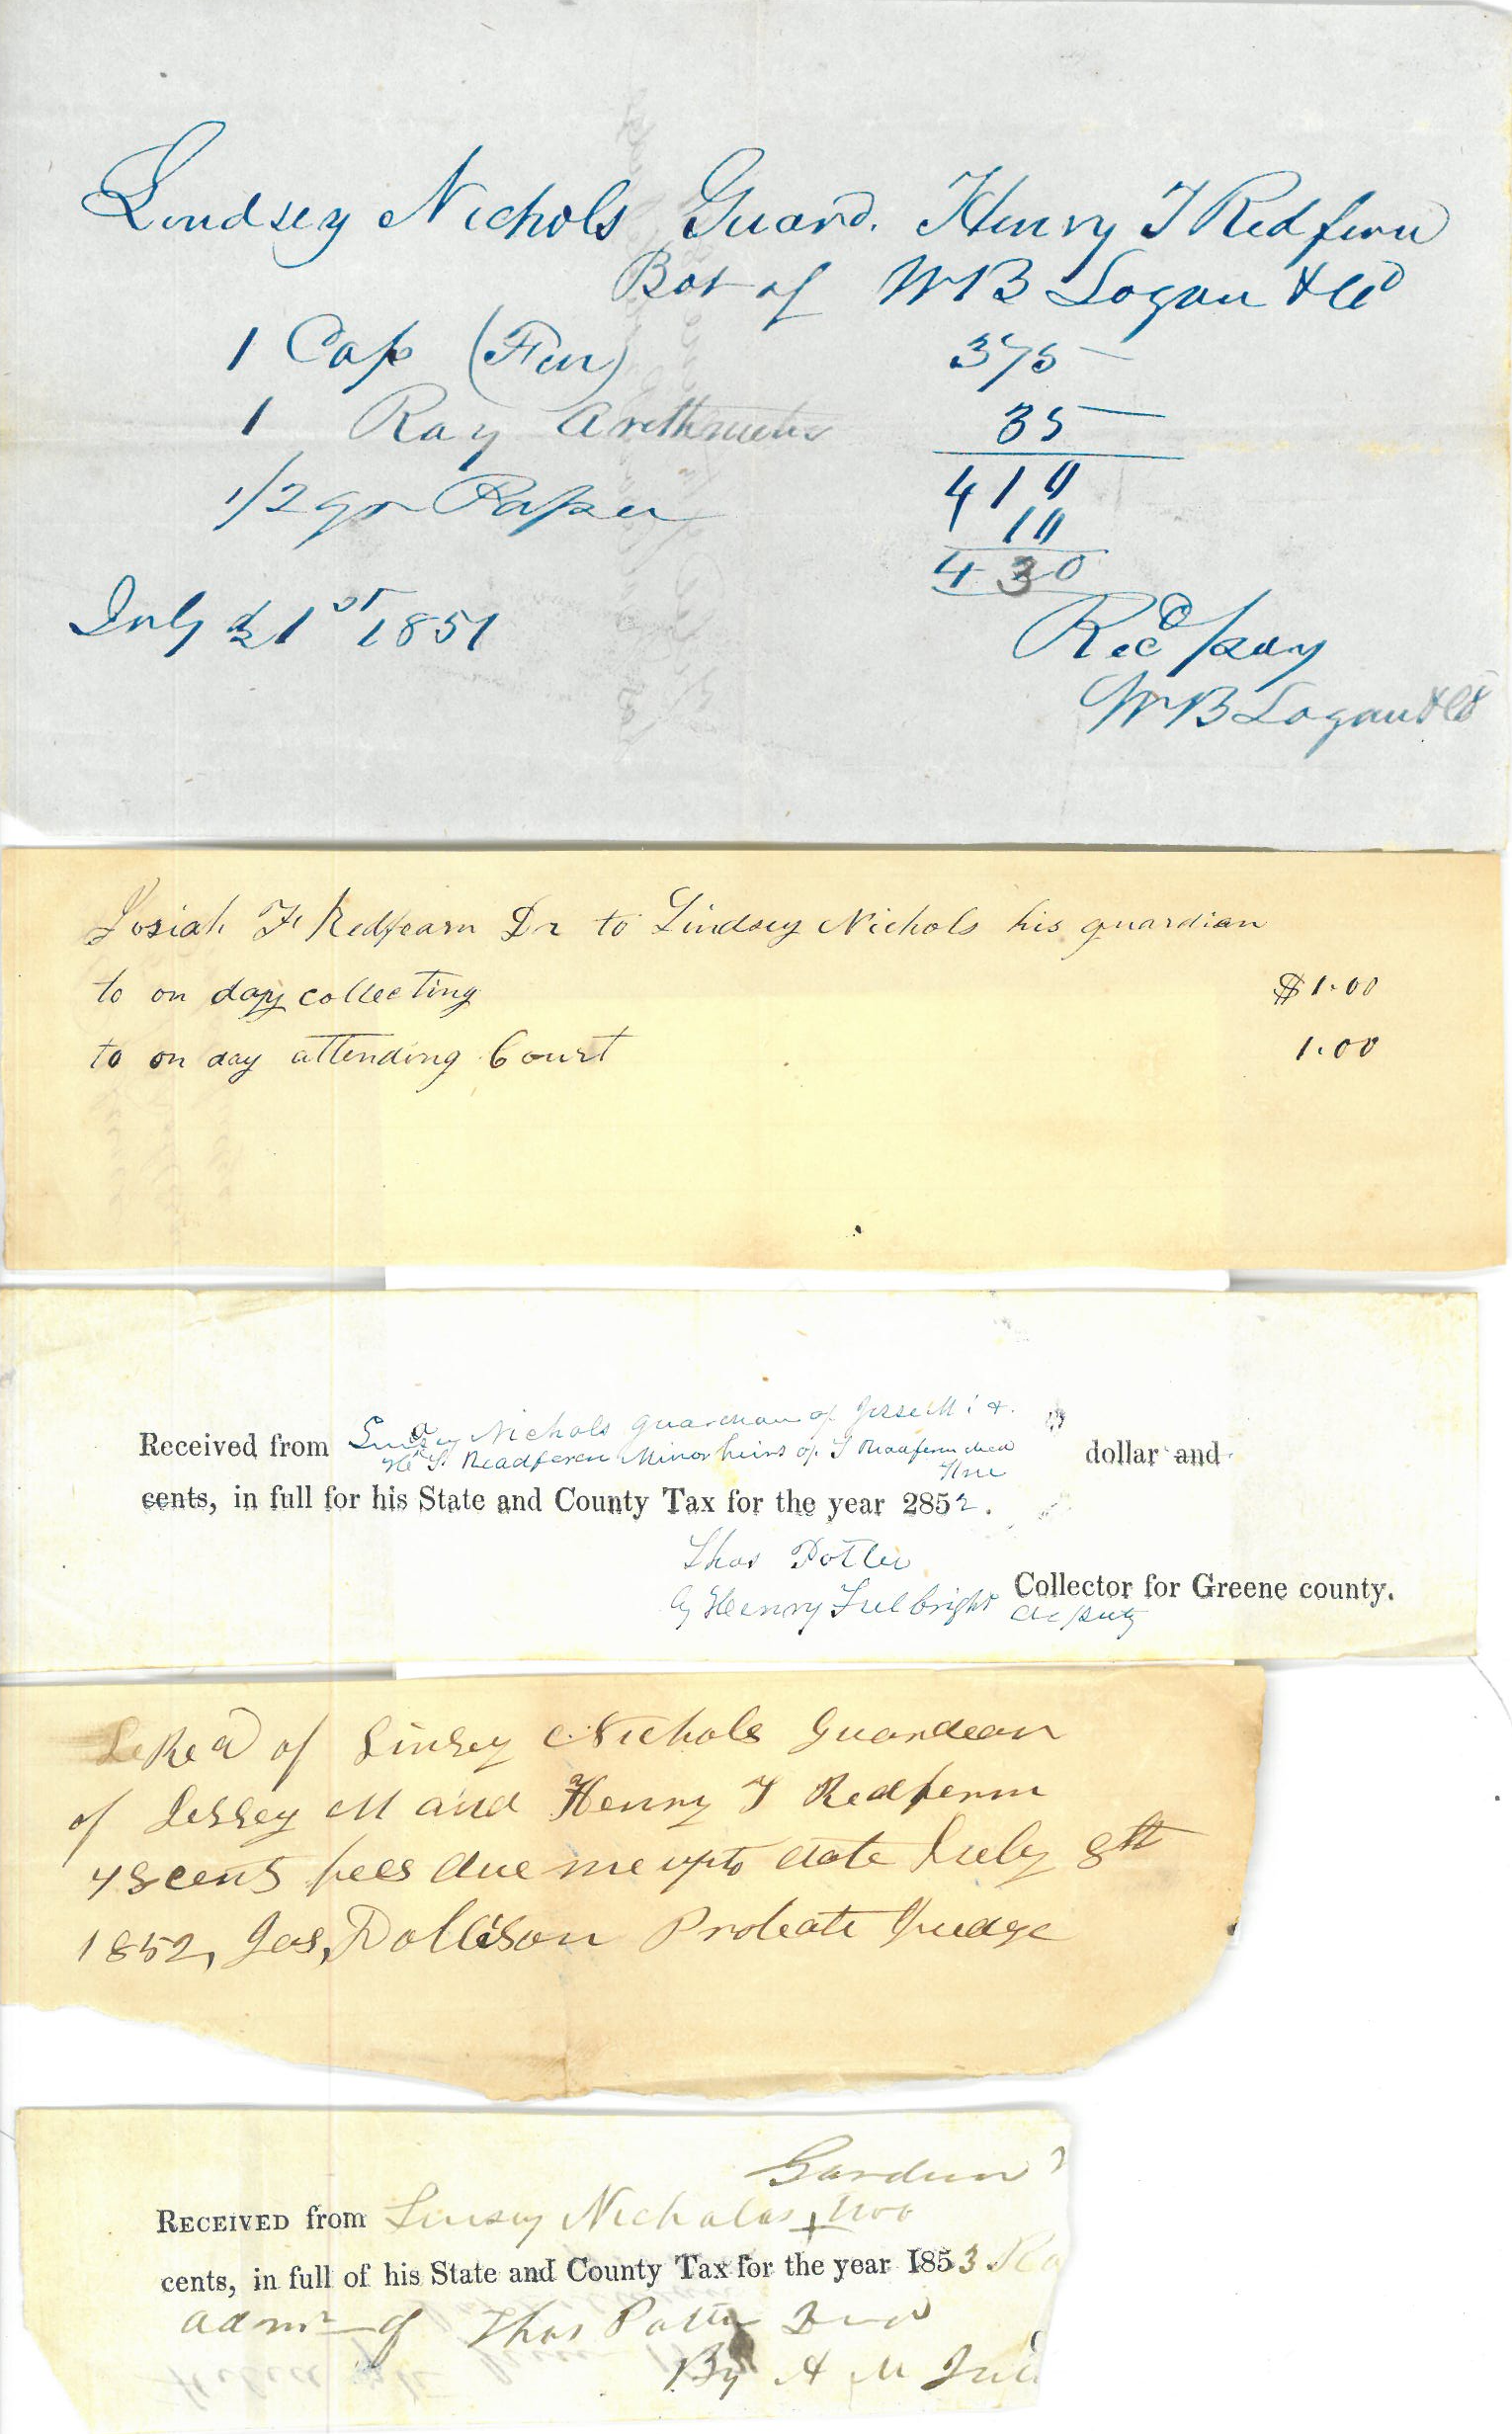 Lindsey Nichols Guard. Henry T Redfern
Bot of W B Logan & Co
1 Cap (Fur) 375
1 Ray Arethmetic 35
410
1/2 qr Paper 10
430
July 21st 1851
Recd pay
W B Logan & Co
Josiah F Redfearn Dr to Lindsey Nichols his guardian
to on day collecting $1.00
to on day attending Court 1.00
Received from Linsey Nichols Guardian of Jesse M &
H T Readferen Minor heirs of T Readfern decd dollar and
three
cents, in full for his State and County Tax for the year 2852.
Thos Potter
Collector for Greene county.
By Henry Fulbright deputy
Recd of Linsey Nichols Guardean
of Jessey M and Henry T Redfernn
48 cents fees due me upto date July 8th
1852, Jas, Dollison Probate Judge
Gardian
RECEIVED from Linsey Nicholas + two
cents, in full of his State and County Tax for the year 1853
admr of Thos Potter Decd
By A M